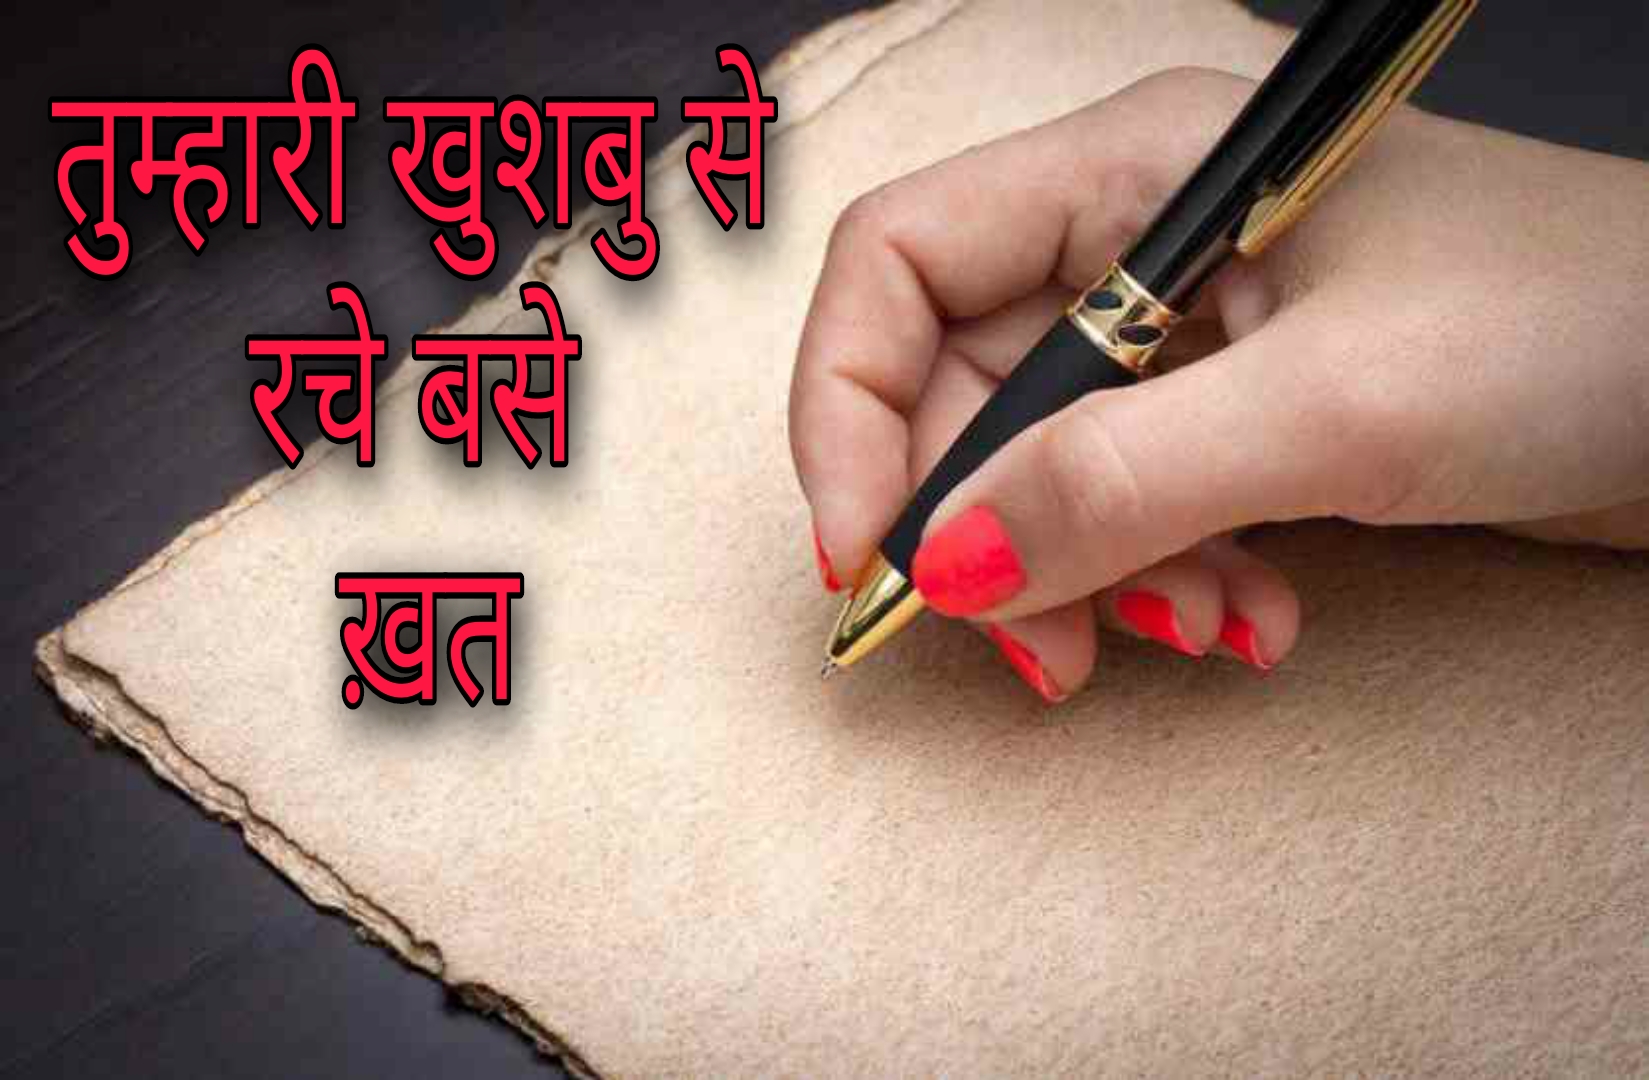 तुम्हारी खुशबु से
रचे बसे
ख़त